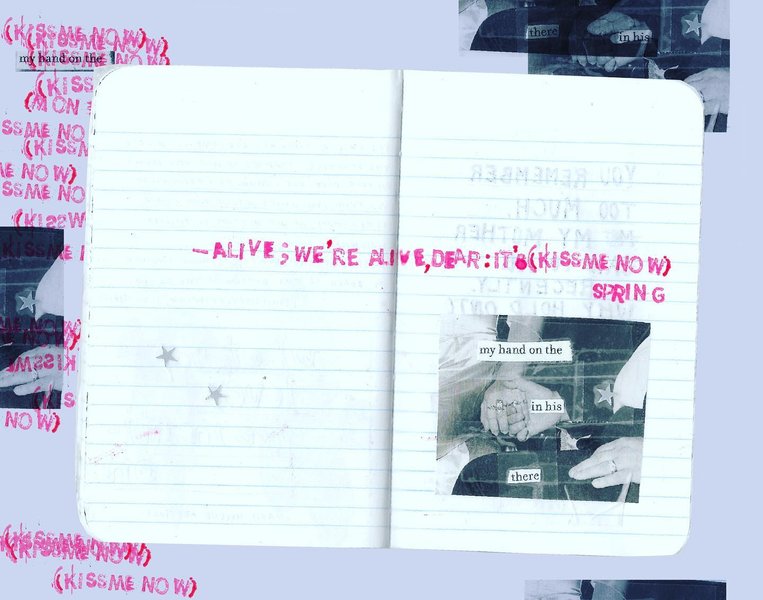 (KISSME NOW)
(KISSME NOW)
(KISSME NOW)
my hand on the
there
in his
(KISS
SSME NO
(KISSM
ME NOW)
SSME NO
(KISSW
YOU REMEMBER
TOO MUCH,
ME MY MOTHER
RECENTLY.
—ALIVE; WE'RE ALIVE, DEAR: IT'S (KISSME NOW)
SPRING
my hand on the
in his
there
NOW)
(KISSME NOW)
(KISSME NOW)
(KISSME NOW)